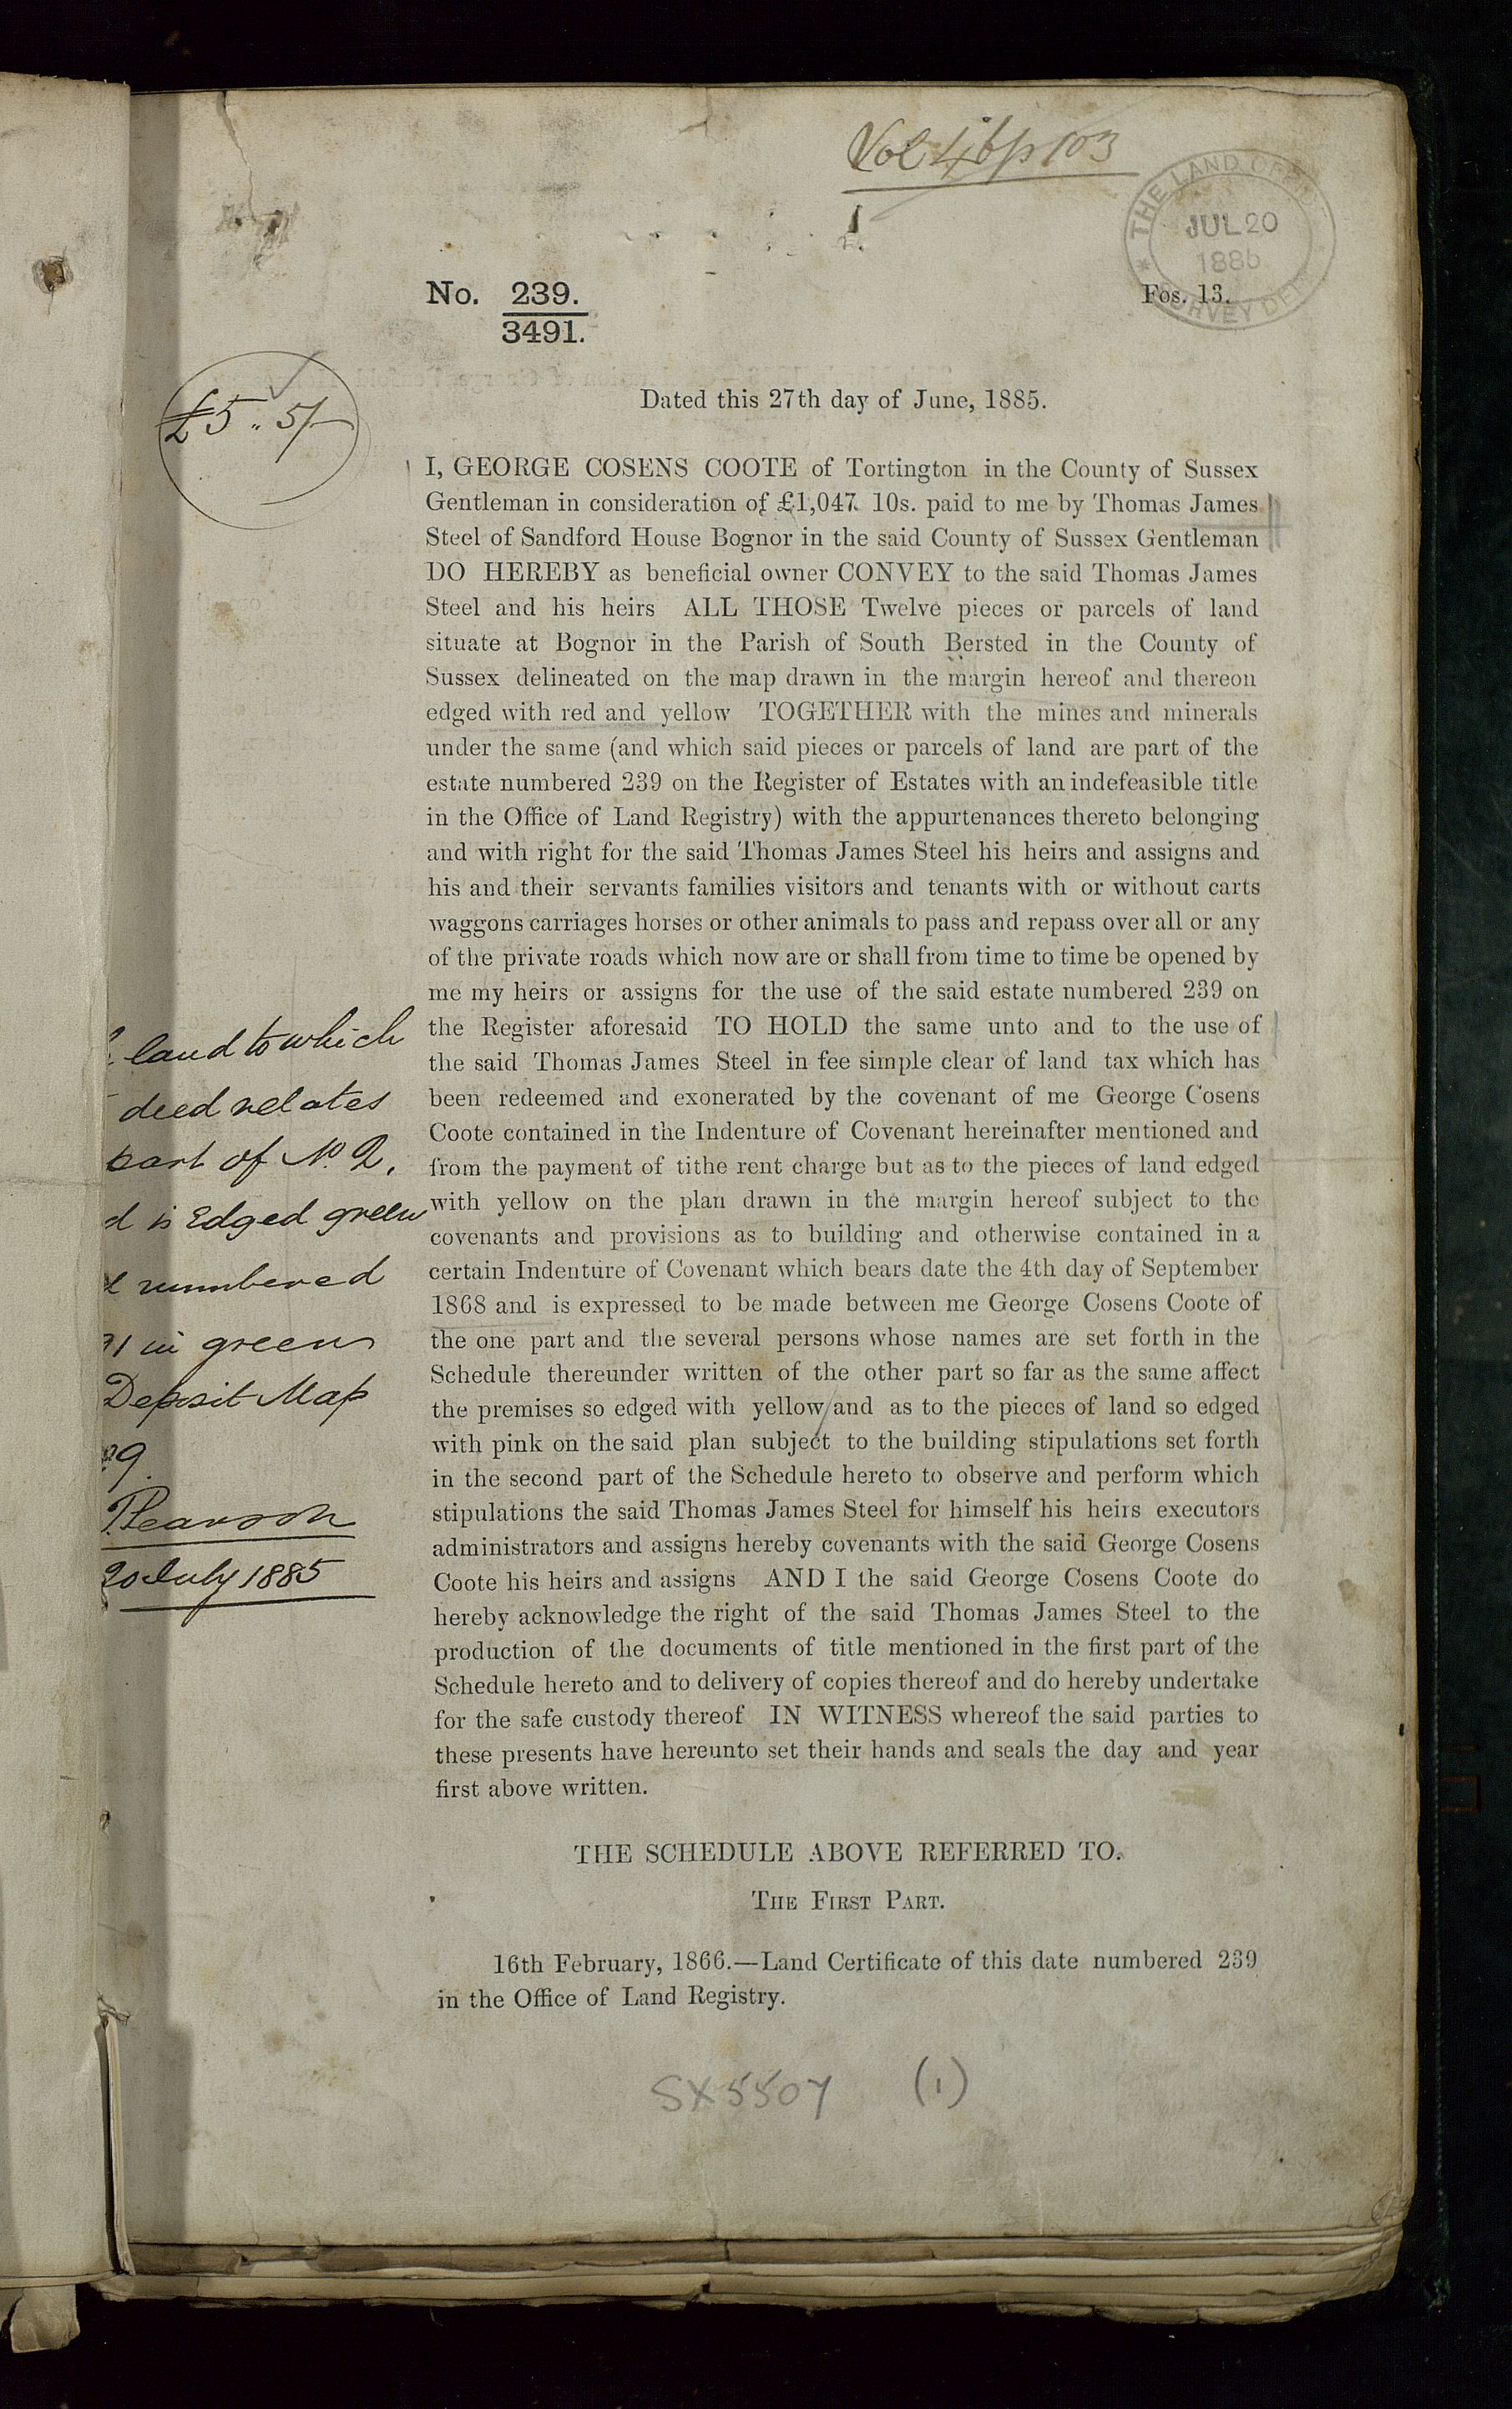 Vol 46 p 103
THE LAND OFFICE
JUL 20
1885
SURVEY DEP
No. 239.
3491.
Fos. 13.
£5 " 5/-
Dated this 27th day of June, 1885.
I, GEORGE COSENS COOTE of Tortington in the County of Sussex
Gentleman in consideration of £1,047 10s. paid to me by Thomas James
Steel of Sandford House Bognor in the said County of Sussex Gentleman
DO HEREBY as beneficial owner CONVEY to the said Thomas James
Steel and his heirs ALL THOSE Twelve pieces or parcels of land
situate at Bognor in the Parish of South Bersted in the County of
Sussex delineated on the map drawn in the margin hereof and thereon
edged with red and yellow TOGETHER with the mines and minerals
under the same (and which said pieces or parcels of land are part of the
estate numbered 239 on the Register of Estates with an indefeasible title
in the Office of Land Registry) with the appurtenances thereto belonging
and with right for the said Thomas James Steel his heirs and assigns and
his and their servants families visitors and tenants with or without carts
waggons carriages horses or other animals to pass and repass over all or any
of the private roads which now are or shall from time to time be opened by
me my heirs or assigns for the use of the said estate numbered 239 on
the Register aforesaid TO HOLD the same unto and to the use of
the said Thomas James Steel in fee simple clear of land tax which has
been redeemed and exonerated by the covenant of me George Cosens
Coote contained in the Indenture of Covenant hereinafter mentioned and
from the payment of tithe rent charge but as to the pieces of land edged
with yellow on the plan drawn in the margin hereof subject to the
covenants and provisions as to building and otherwise contained in a
certain Indenture of Covenant which bears date the 4th day of September
1868 and is expressed to be made between me George Cosens Coote of
the one part and the several persons whose names are set forth in the
Schedule thereunder written of the other part so far as the same affect
the premises so edged with yellow and as to the pieces of land so edged
with pink on the said plan subject to the building stipulations set forth
in the second part of the Schedule hereto to observe and perform which
stipulations the said Thomas James Steel for himself his heirs executors
administrators and assigns hereby covenants with the said George Cosens
Coote his heirs and assigns AND I the said George Cosens Coote do
hereby acknowledge the right of the said Thomas James Steel to the
production of the documents of title mentioned in the first part of the
Schedule hereto and to delivery of copies thereof and do hereby undertake
for the safe custody thereof IN WITNESS whereof the said parties to
these presents have hereunto set their hands and seals the day and year
first above written.
land to which
deed relates
part of No. 2,
is Edged green
numbered
91 in green
Deposit Map
9
Pearson
20 July 1885
THE SCHEDULE ABOVE REFERRED TO.
THE FIRST PART.
16th February, 1866.—Land Certificate of this date numbered 239
in the Office of Land Registry.
SX5507 (1)